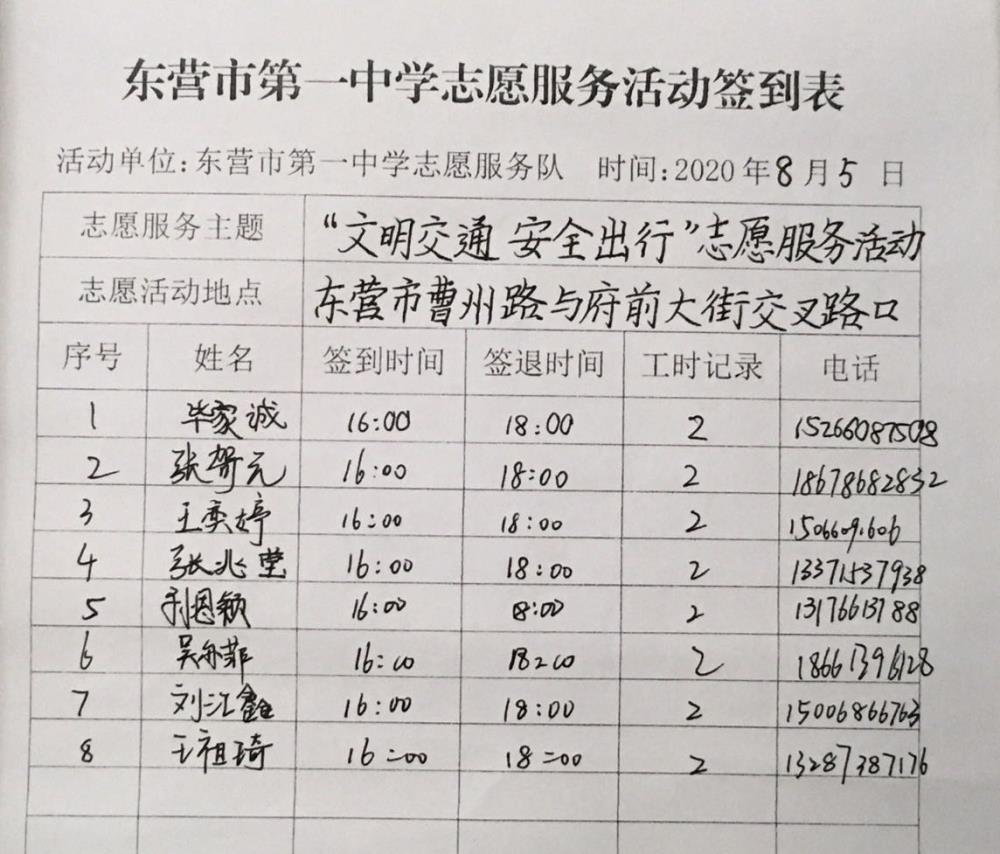 东营市第一中学志愿服务活动签到表
活动单位:东营市第一中学志愿服务队 时间:2020年8月5日
志愿服务主题 “文明交通 安全出行”志愿服务活动
志愿活动地点 东营市曹州路与府前大街交叉路口
序号 姓名 签到时间 签退时间 工时记录 电话
1 毕家诚 16:00 18:00 2 15266087508
2 张智元 16:00 18:00 2 18678682832
3 王奕婷 16:00 18:00 2
4 张兆莹 16:00 18:00 2 13371537938
5 16:00 18:00 2 13176613788
6 16:00 18:00 2 18661396128
7 刘汇鑫 16:00 18:00 2 15006866763
8 王祖琦 16:00 18:00 2 13287387176